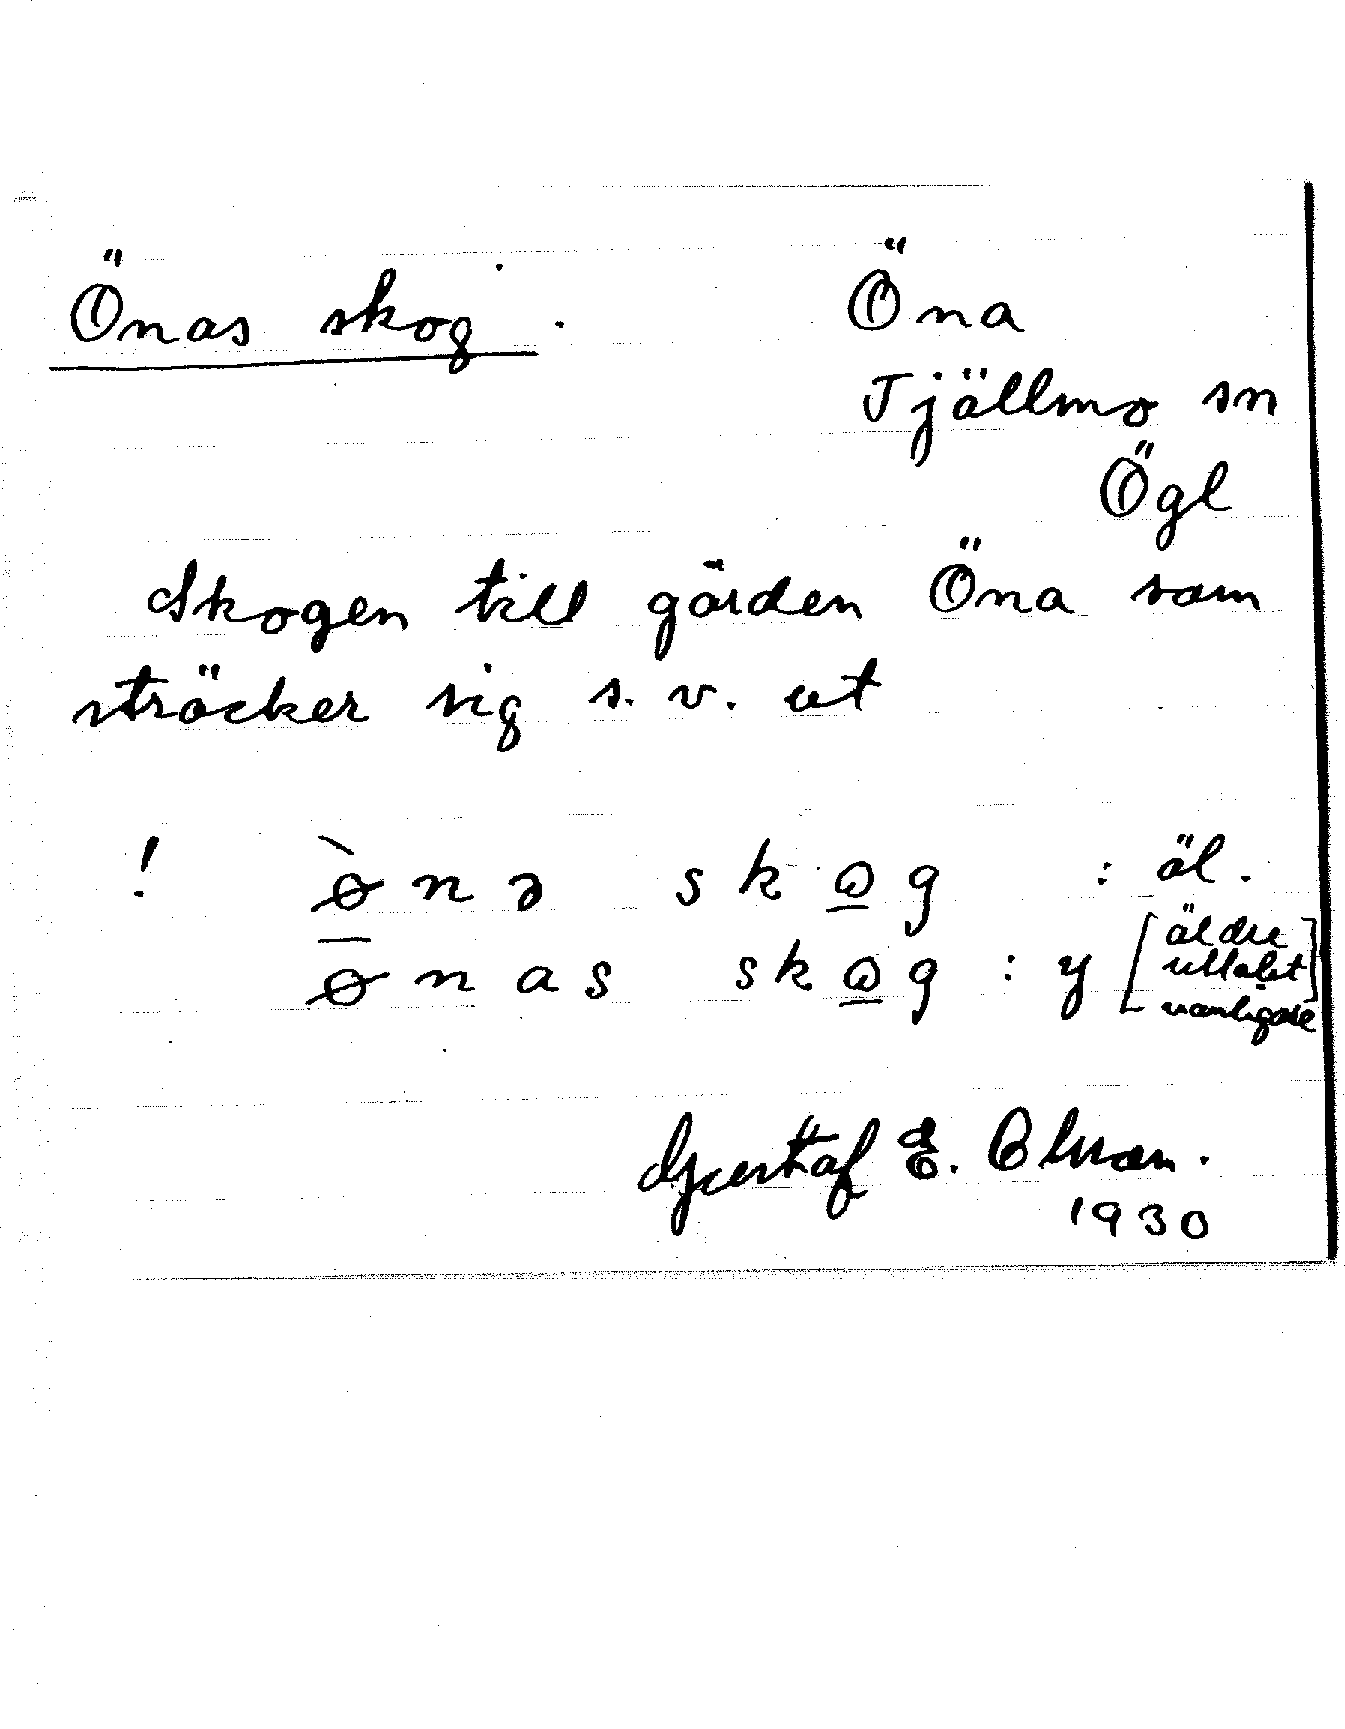 Önas skog.
Öna
Tjällmo sn
Ögl
Skogen till gården Öna som
sträcker sig s. v. ut
! ø̀nə skωg : äl.
ø̄nas skωg : y [äldre
uttalet]
vanligare
Gustaf E. Olsson.
1930